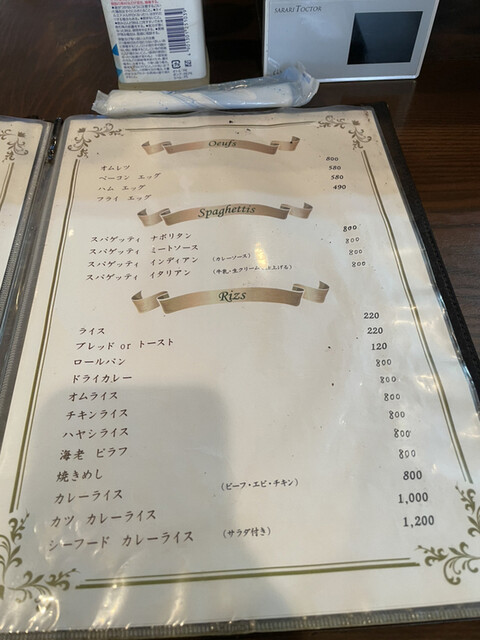 SARARI TOCTOR
Oeufs
オムレツ 800
ベーコン エッグ 580
ハム エッグ 580
フライ エッグ 490
Spaghettis
スパゲッティ ナポリタン 800
スパゲッティ ミートソース 800
スパゲッティ インディアン (カレーソース) 800
スパゲッティ イタリアン (牛乳・生クリーム 上げる) 800
Rizs
ライス 220
ブレッド or トースト 220
ロールパン 120
ドライカレー 800
オムライス 800
チキンライス 800
ハヤシライス 800
海老 ピラフ 800
焼きめし 800
カレーライス (ビーフ・エビ・チキン) 800
カツ カレーライス 1,000
シーフード カレーライス (サラダ付き) 1,200